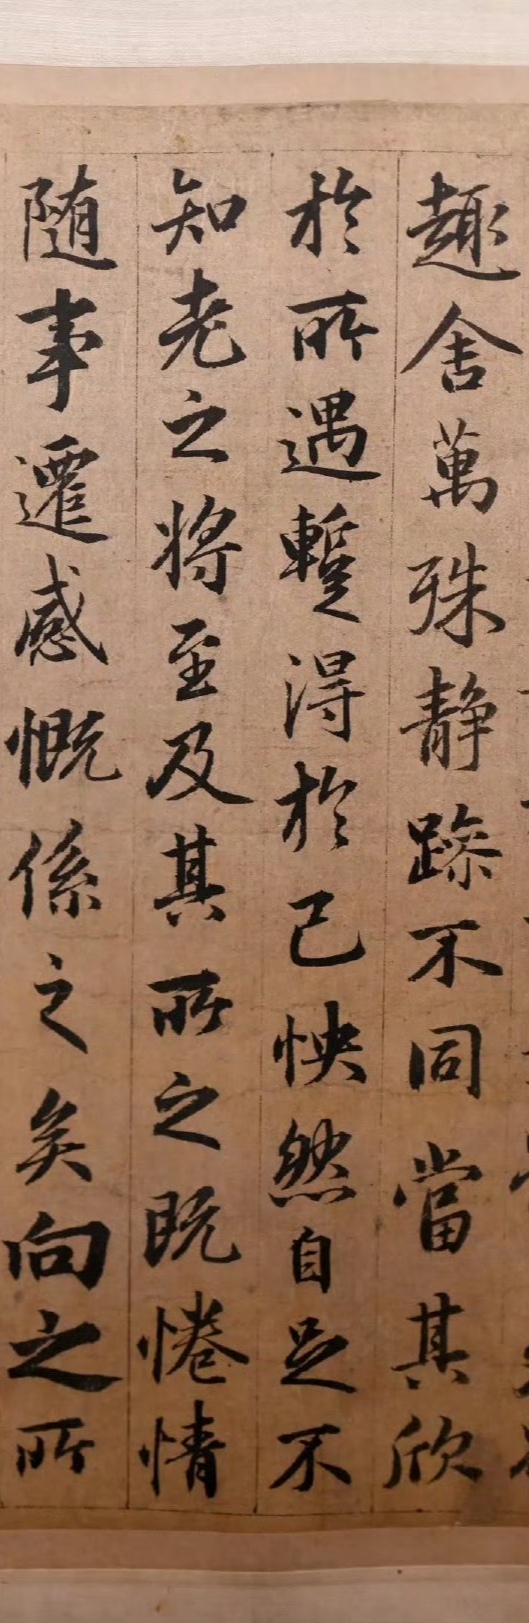 趣舍萬殊静躁不同當其欣
於所遇暫得於己怏然自足不
知老之將至及其所之既惓情
随事遷感慨係之矣向之所